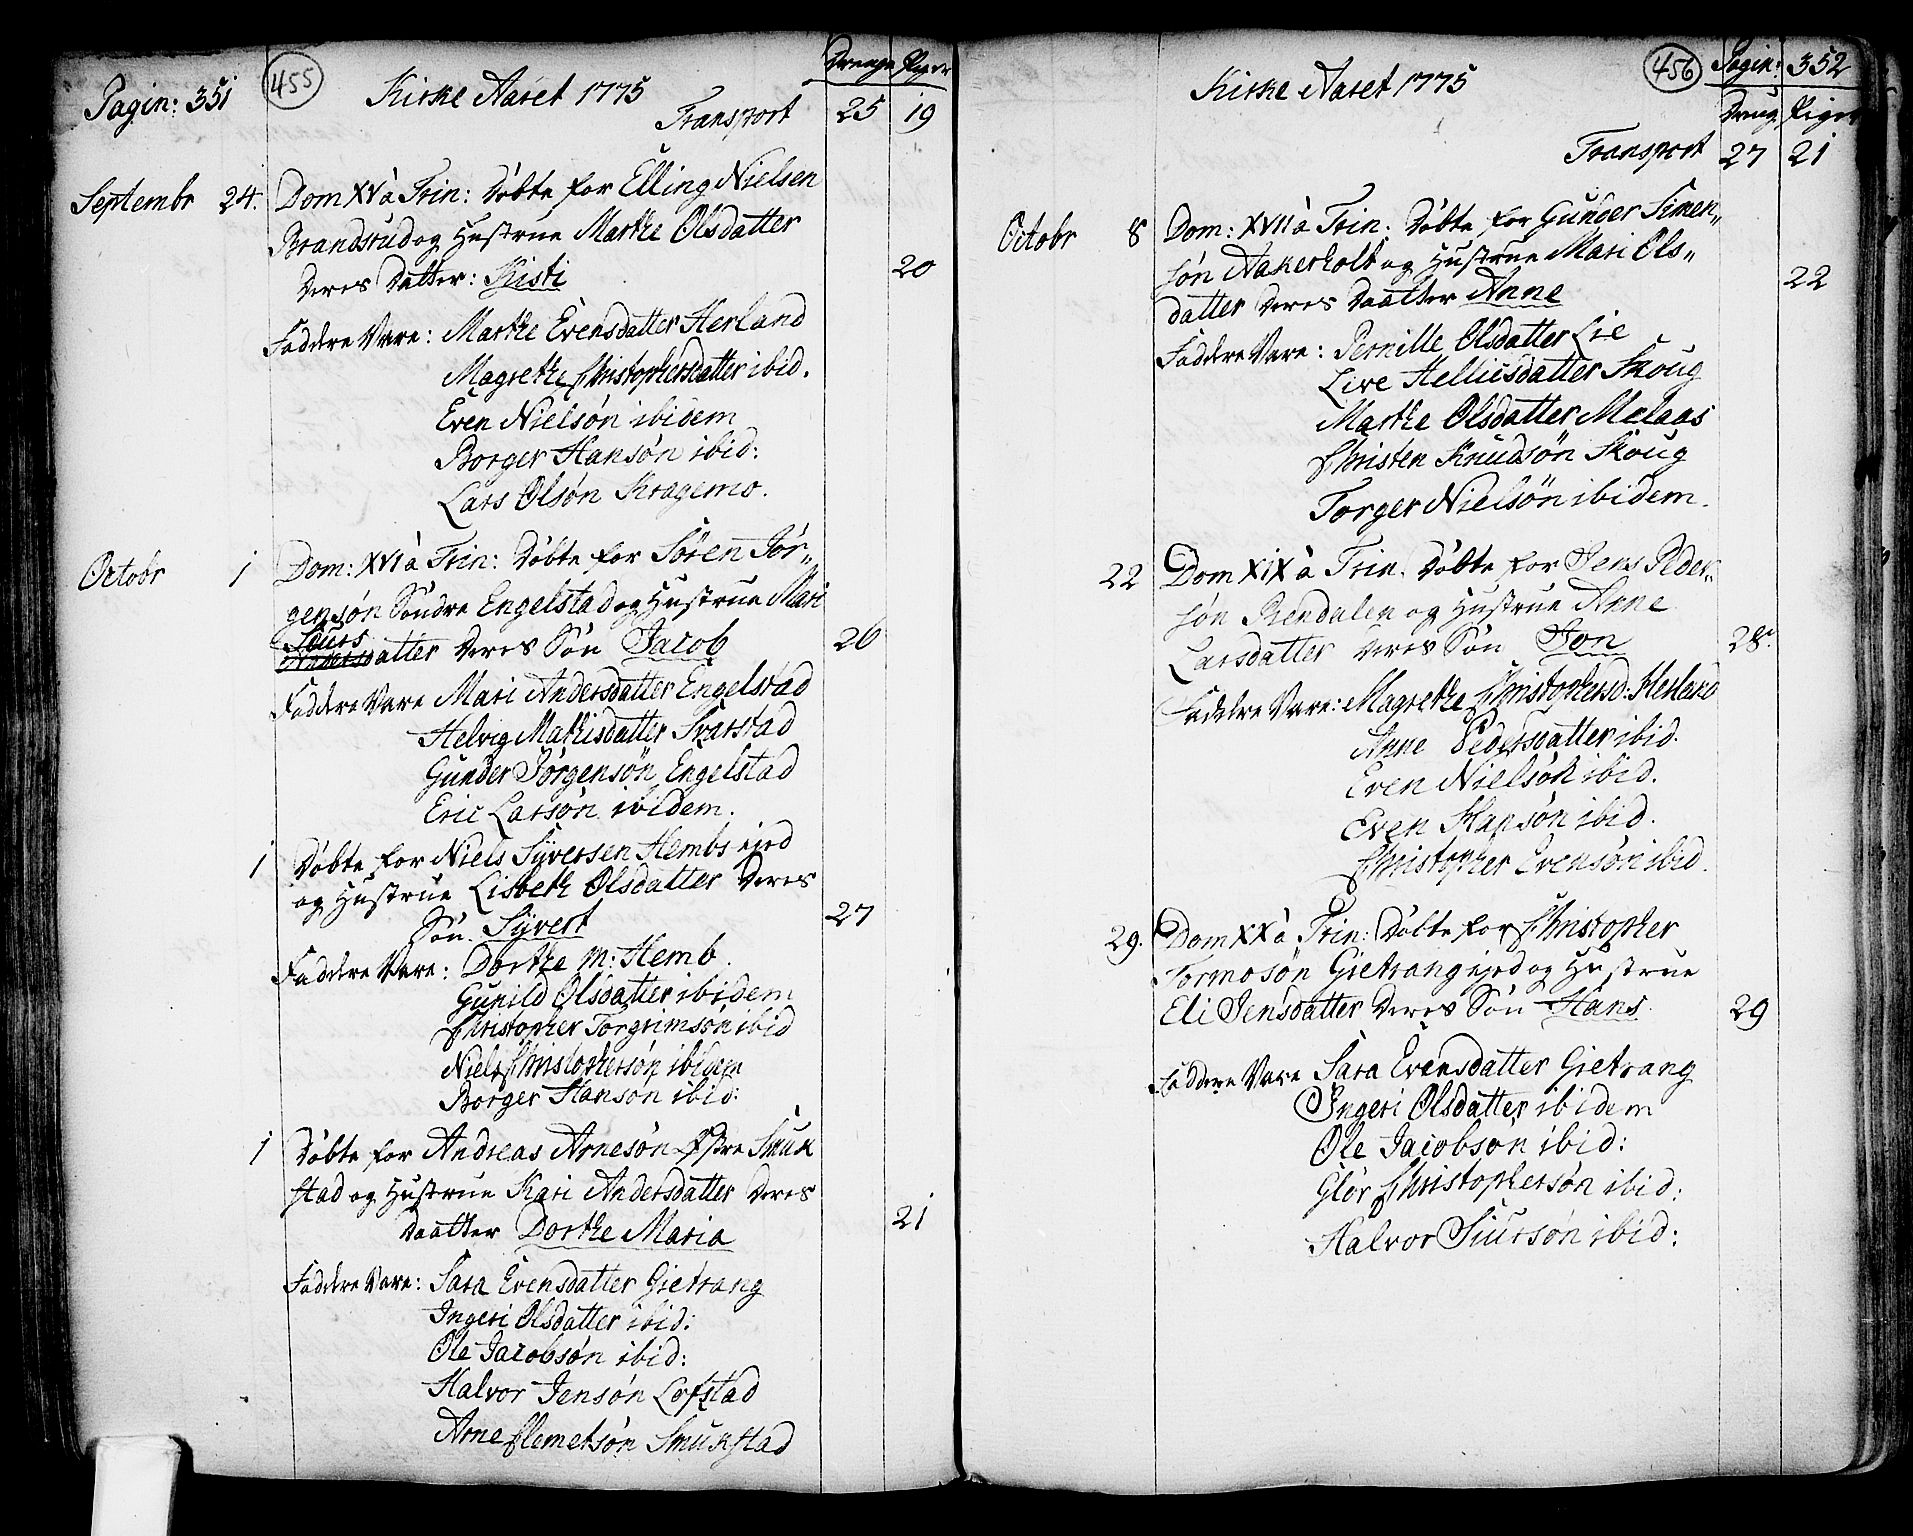 Pagin: 351
455
Kirke Aaret 1775
Drenge Piger
Transport 25 19
Septembr 24. Dom XV à Trin: Døbte for Elling Nielsen
Brandsrud og Hustrue Marthe Olsdatter
Deres Datter: Kisti 20
Faddere Vare: Marthe Evensdatter Herland
Magrethe Christophersdatter ibid.
Even Nielsøn ibidem
Borger Hansøn ibid:
Lars Olsøn Kragemo.
Octobr 1 Dom: XVI à Trin: Døbte for Sören Jör„
gensøn Söndre Engelstad og Hustrue Mari
Siurs
Andersdatter Deres Søn Jacob 26
Faddere Vare Mari Andersdatter Engelstad
Helvig Mathisdatter Svarstad
Gunder Jörgensøn Engelstad
Eric Larsøn ibidem.
1 Døbte for Niels Syversen Hembs ejed
og Hustrue Lisbeth Olsdatter Deres
Søn. Syvert 27
Faddere Vare: Dorthe M: Hemb.
Gunild Olsdatter ibidem
Christopher Torgrimsøn ibid
Niels Christophersøn ibidem
Borger Hanson ibid:
1 Døbte for Andreas Arnesøn Øfre Smuk
stad og Hustrue Kari Andersdatter Deres
Daatter Dorthe Maria 21
Faddere Vare: Sara Evensdatter Gietrang
Ingeri Olsdatter ibid:
Ole Jacobsøn ibid:
Halvor Jensøn Lofstad
Arne Clemetsøn Smukstad
456
Pagin: 352
Kirke Aaret 1775
Dreng Piger
Transport 27 21
Octobr 8 Dom: XVII à Trin. Døbte for Gunder Simen„
søn Aakerholt og Hustrue Mari Ols„
datter Deres Daatter Anne 22
Faddere Vare: Pernille Olsdatter Lie
Live Hellicsdatter Skoug
Marthe Olsdatter Melaas
Christen Knudsön Skoug
Torger Nielsön ibidem.
22 Dom XIX à Trin. Døbte for Jens Peder„
søn Rendalen og Hustrue Anne
Larsdatter Deres Søn Jon 28.
Faddere Vare: Magrethe Christophersd: Herland
Anne Pedersdatter ibid.
Even Nielsøn ibid.
Even Hansøn ibid.
Christopher Evensøn ibid.
29. Dom XX à Trin: Døbte for Christopher
Tormosøn Gietrang ejed og Hustrue
Eli Jensdatter Deres Søn Hans 29
Faddere Vare Sara Evensdatter Gietrang
Ingeri Olsdatter ibidem
Ole Jacobson ibid:
Glör Christophersøn ibid:
Halvor Siursøn ibid: